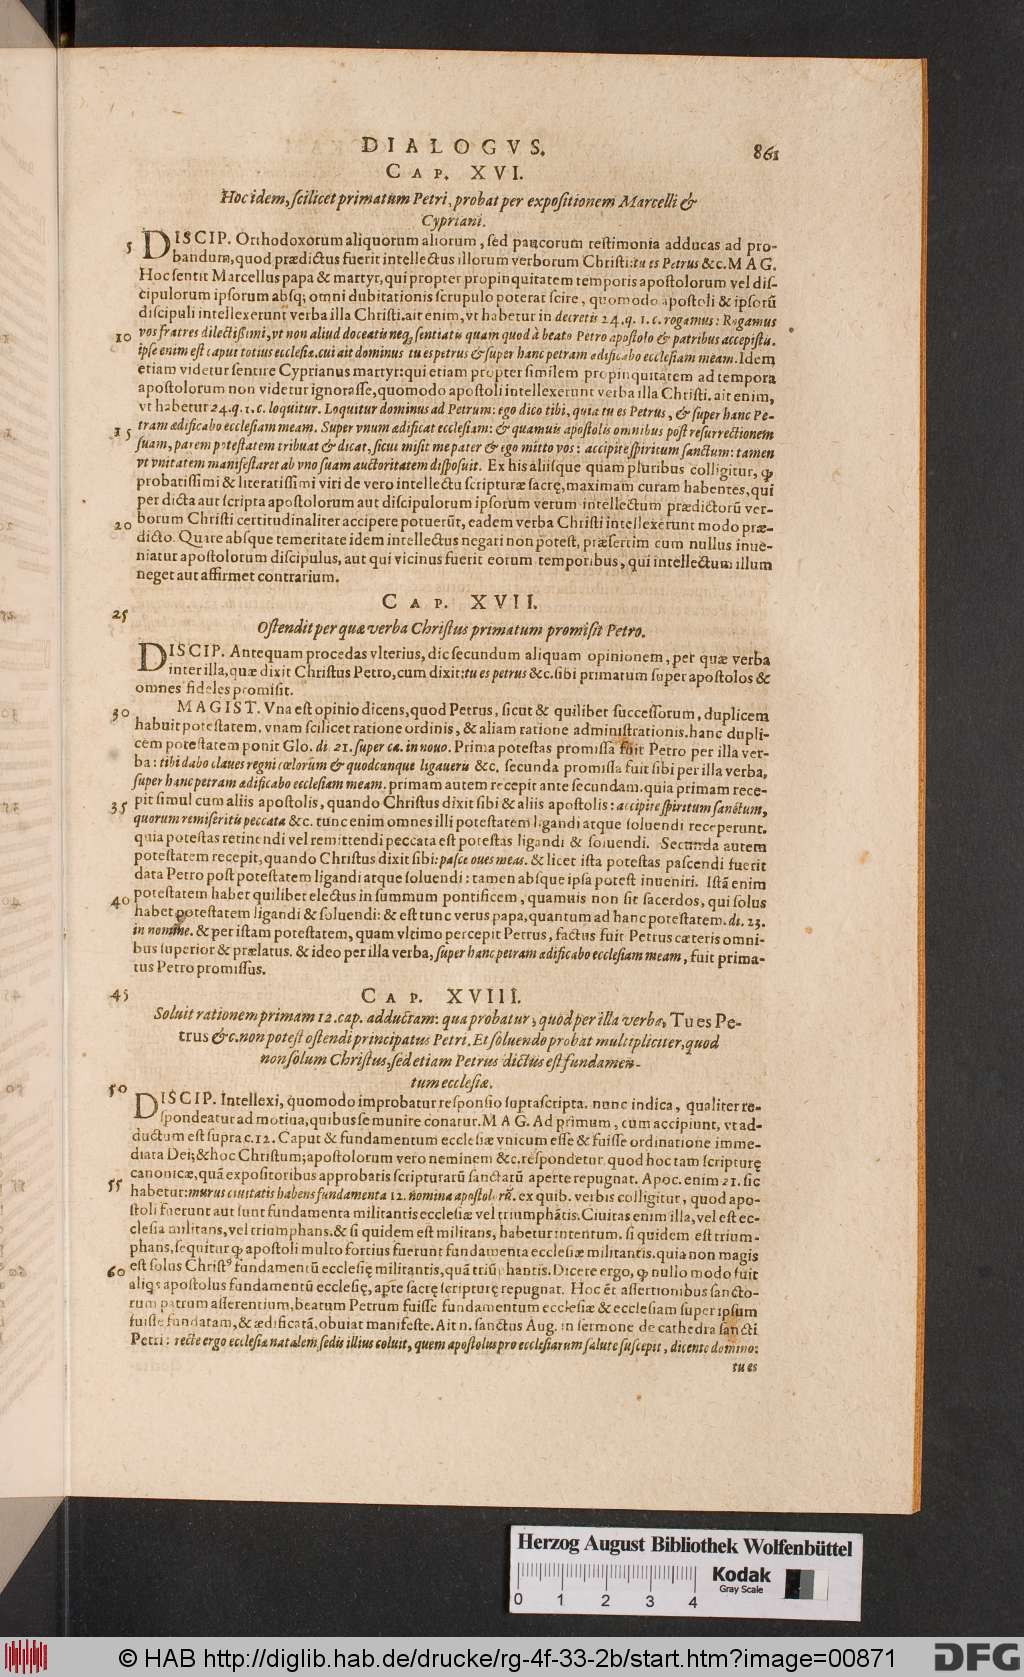 DIALOGVS. 861
CAP. XVI.
Hoc idem, scilicet primatum Petri, probat per expositionem Marcelli &
Cypriani.
5 DISCIP. Orthodoxorum aliquorum aliorum, sed paucorum testimonia adducas ad pro-
bandum, quod prædictus fuerit intellectus illorum verborum Christi: tu es Petrus &c. MAG.
Hoc sentit Marcellus papa & martyr, qui propter propinquitatem temporis apostolorum vel dis-
cipulorum ipsorum absq; omni dubitationis scrupulo poterat scire, quomodo apostoli & ipsorũ
discipuli intellexerunt verba illa Christi. ait enim, vt habetur in decretis 24. q. 1. c. rogamus: Rogamus
10 vos fratres dilectissimi, vt non aliud doceatis neq; sentiatis quam quod à beato Petro apostolo & patribus accepistis.
ipse enim est caput totius ecclesiæ. cui ait dominus tu es petrus & super hanc petram ædificabo ecclesiam meam. Idem
etiam videtur sentire Cyprianus martyr: qui etiam propter similem propinquitatem ad tempora
apostolorum non videtur ignorasse, quomodo apostoli intellexerunt verba illa Christi. ait enim,
vt habetur 24. q. 1. c. loquitur. Loquitur dominus ad Petrum: ego dico tibi, quia tu es Petrus, & super hanc Pe-
15 tram ædificabo ecclesiam meam. Super vnum ædificat ecclesiam: & quamuis apostolis omnibus post resurrectionem
suam, parem potestatem tribuat & dicat, sicut misit me pater & ego mitto vos: accipite spiritum sanctum: tamen
vt vnitatem manifestaret ab vno suam auctoritatem disposuit. Ex his aliisque quam pluribus colligitur, ꝙ
probatissimi & literatissimi viri de vero intellectu scripturæ sacrę, maximam curam habentes, qui
per dicta aut scripta apostolorum aut discipulorum ipsorum verum intellectum prædictorũ ver-
20 borum Christi certitudinaliter accipere potuerũt, eadem verba Christi intellexerunt modo præ-
dicto. Quare absque temeritate idem intellectus negari non potest, præsertim cum nullus inue-
niatur apostolorum discipulus, aut qui vicinus fuerit eorum temporibus, qui intellectum illum
neget aut affirmet contrarium.
CAP. XVII.
25
Ostendit per quæ verba Christus primatum promisit Petro.
DISCIP. Antequam procedas vlterius, dic secundum aliquam opinionem, per quæ verba
inter illa, quæ dixit Christus Petro, cum dixit: tu es petrus &c. sibi primatum super apostolos &
omnes fideles promisit.
30 MAGIST. Vna est opinio dicens, quod Petrus, sicut & quilibet successorum, duplicem
habuit potestatem. vnam scilicet ratione ordinis, & aliam ratione administrationis. hanc dupli-
cem potestatem ponit Glo. di. 21. super ca. in nouo. Prima potestas promissa fuit Petro per illa ver-
ba: tibi dabo claues regni cœlorũm & quodcunque ligaueris &c. secunda promissa fuit sibi per illa verba,
super hanc petram ædificabo ecclesiam meam. primam autem recepit ante secundam. quia primam rece-
35 pit simul cum aliis apostolis, quando Christus dixit sibi & aliis apostolis: accipite spiritum sanctum,
quorum remiseritis peccata &c. tunc enim omnes illi potestatem ligandi atque soluendi receperunt.
quia potestas retinendi vel remittendi peccata est potestas ligandi & soluendi. Secunda autem
potestatem recepit, quando Christus dixit sibi: pasce oues meas. & licet ista potestas pascendi fuerit
data Petro post potestatem ligandi atque soluendi: tamen absque ipsa potest inueniri. Istã enim
40 potestatem habet quilibet electus in summum pontificem, quamuis non sit sacerdos, qui solus
habet potestatem ligandi & soluendi: & est tunc verus papa, quantum ad hanc potestatem. di. 23.
in nomine. & per istam potestatem, quam vltimo percepit Petrus, factus fuit Petrus cæteris omni-
bus superior & prælatus. & ideo per illa verba, super hanc petram ædificabo ecclesiam meam, fuit prima-
tus Petro promissus.
45 CAP. XVIII.
Soluit rationem primam 12. cap. adductam: qua probatur, quod per illa verba, Tu es Pe-
trus &c. non potest ostendi principatus Petri. Et soluendo probat multipliciter, quod
non solum Christus, sed etiam Petrus dictus est fundamen-
tum ecclesiæ.
50 DISCIP. Intellexi, quomodo improbatur responsio suprascripta. nunc indica, qualiter re-
spondeatur ad motiua, quibus se munire conatur. MAG. Ad primum, cum accipiunt, vt ad-
ductum est supra c. 12. Caput & fundamentum ecclesiæ vnicum esse & fuisse ordinatione imme-
diata Dei; & hoc Christum; apostolorum vero neminem &c. respondetur quod hoc tam scripturę
canonicæ, quã expositoribus approbatis scripturarũ sanctarũ aperte repugnat. Apoc. enim 21. sic
55 habetur: murus ciuitatis habens fundamenta 12. nomina apostolorũ. ex quib. verbis colligitur, quod apo-
stoli fuerunt aut sunt fundamenta militantis ecclesiæ vel triumphãtis. Ciuitas enim illa, vel est ec-
clesia militans, vel triumphans. & si quidem est militans, habetur intentum. si quidem est trium-
phans, sequitur ꝙ apostoli multo fortius fuerunt fundamenta ecclesiæ militantis. quia non magis
60 est solus Christ9 fundamentũ ecclesię militantis, quã triũphantis. Dicere ergo, ꝙ nullo modo fuit
aliqs apostolus fundamentũ ecclesię, apte sacrę scripturę repugnat. Hoc ẽt assertionibus sancto-
rum patrum asserentium, beatum Petrum fuisse fundamentum ecclesiæ & ecclesiam super ipsum
fuisse fundatam, & ædificatã, obuiat manifeste. Ait n. sanctus Aug. in sermone de cathedra sancti
Petri: recte ergo ecclesia natalem sedis illius coluit, quem apostolus pro ecclesiarum salute suscepit, dicente domino:
tu es
Herzog August Bibliothek Wolfenbüttel
Kodak
Gray Scale
0 1 2 3 4
© HAB http://diglib.hab.de/drucke/rg-4f-33-2b/start.htm?image=00871
DFG